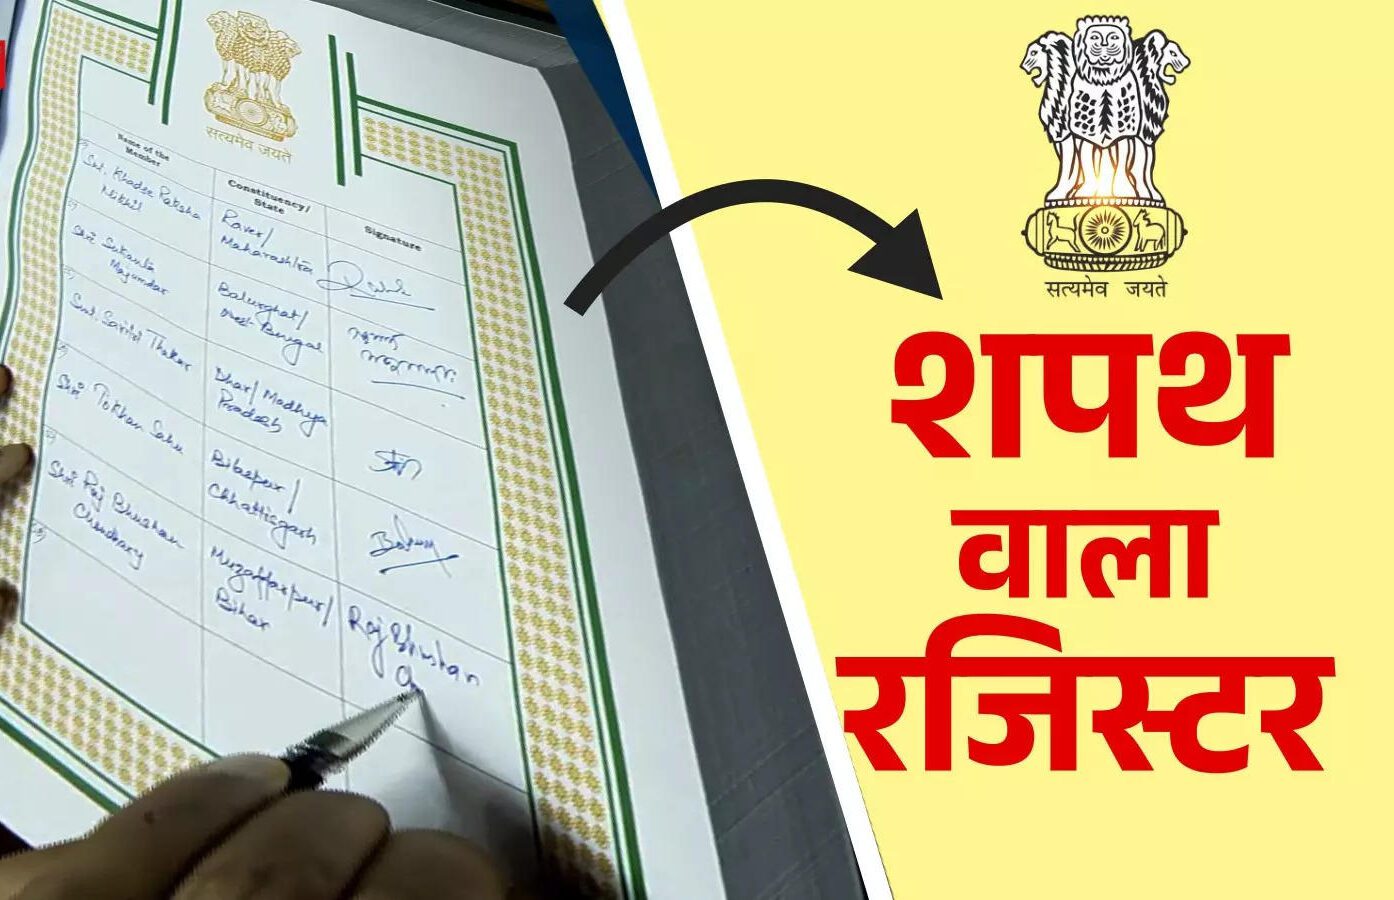 सत्यमेव जयते
Name of the
Member
Constituency/
State
Signature
Smt. Khadse Raksha
Nikhil
Raver/
Maharashtra
Shri Sukanta
Majumdar
Balurghat/
West Bengal
Smt. Savitri Thakur
Dhar/Madhya
Pradesh
Shri Tokhan Sahu
Bilaspur/
Chhattisgarh
Shri Raj Bhushan
Choudhary
Muzaffarpur/
Bihar
Raj Bhushan
सत्यमेव जयते
शपथ
वाला
रजिस्टर